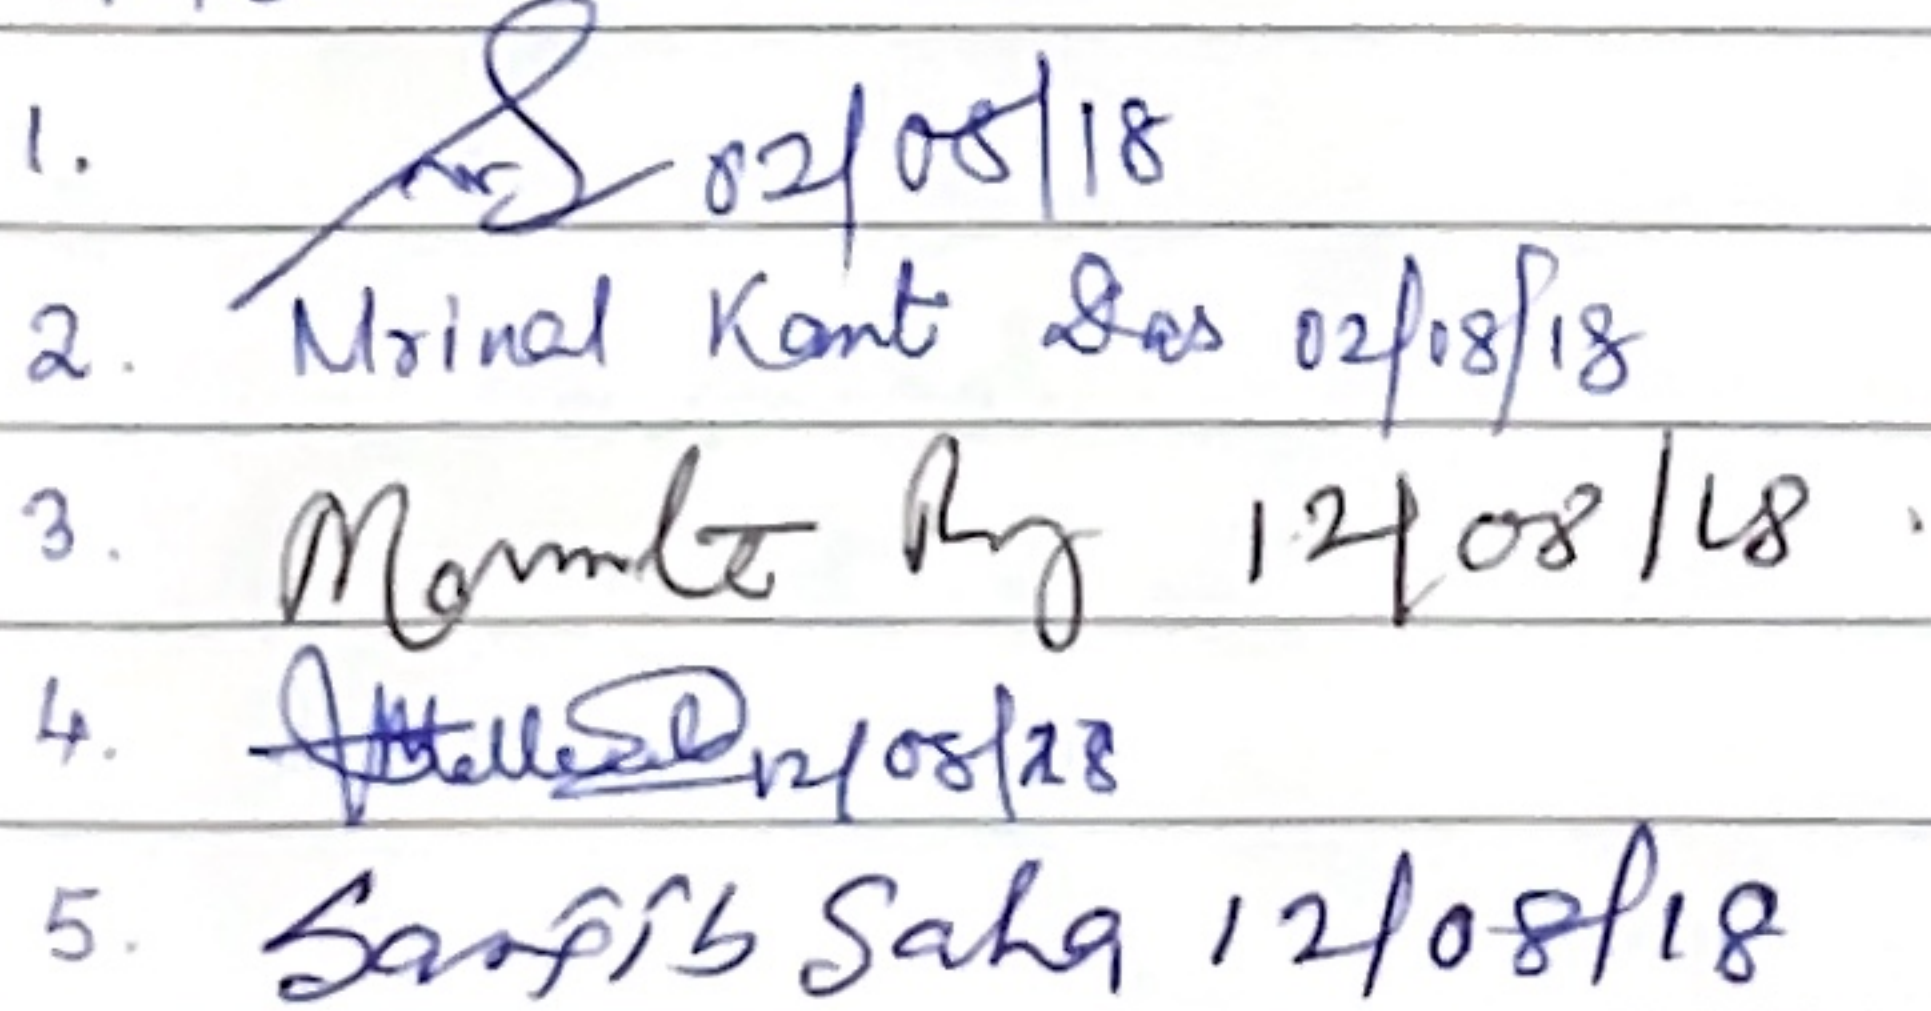 1. 02/08/18
2. Mrinal Kant Das 02/08/18
3. 12/08/18
4. 12/08/
5. Sanjib Saha 12/08/18